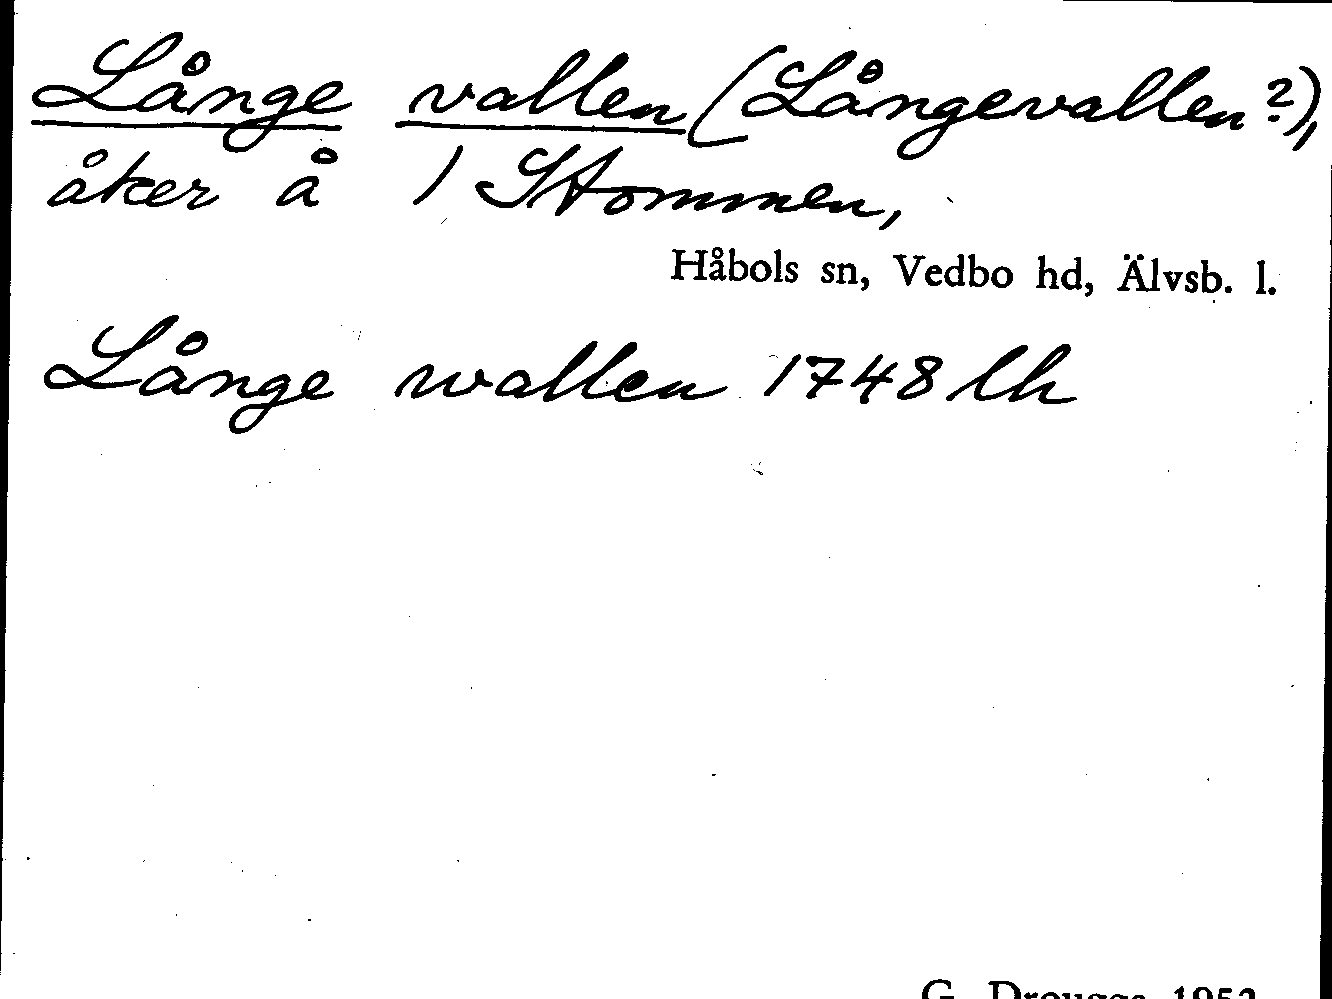 Långe vallen (Långevallen?),
åker å 1 Stommen,
Håbols sn, Vedbo hd, Älvsb. l.
Långe wallen 1748 lh
G. Drougge 1952